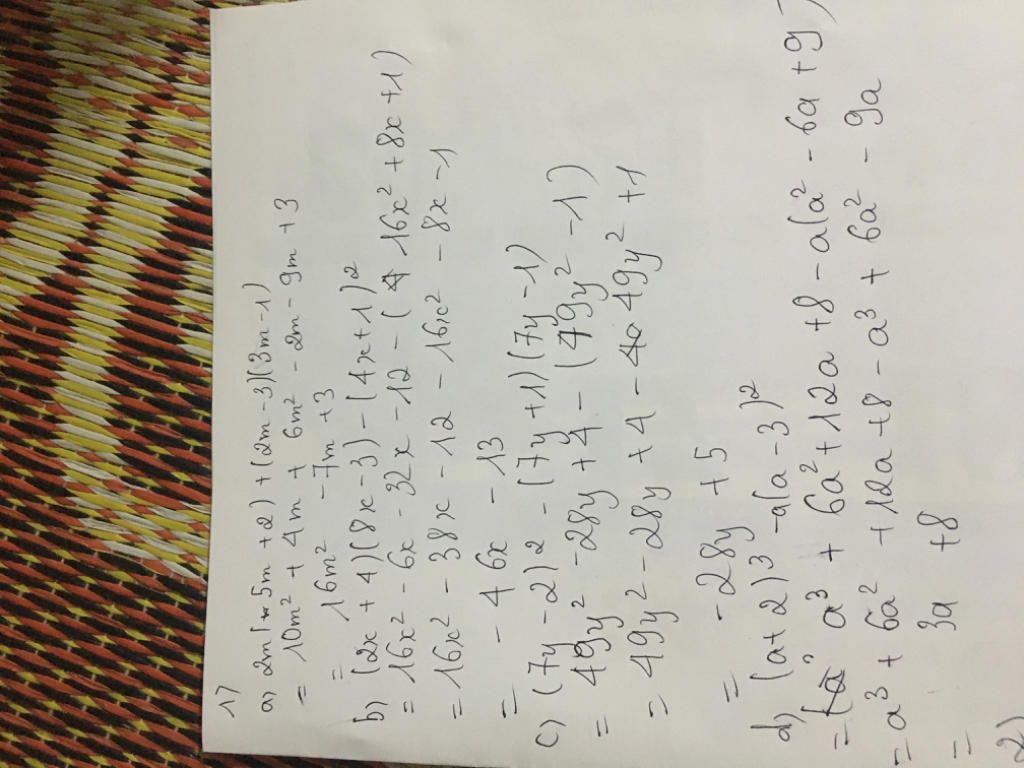 1)
a) 2m(5m + 2) + (2m - 3)(3m - 1)
= 10m² + 4m + 6m² - 2m - 9m + 3
= 16m² - 7m + 3
b) (2x + 4)(8x - 3) - (4x + 1)²
= 16x² - 6x - 32x - 12 - (16x² + 8x + 1)
= 16x² - 38x - 12 - 16x² - 8x - 1
= - 46x - 13
c) (7y - 2)2 - (7y + 1)(7y - 1)
= 49y² - 28y + 4 - (49y² - 1)
= 49y² - 28y + 4 - 49y² + 1
= - 28y + 5
d) (a + 2)³ - a(a - 3)²
= a³ + 6a² + 12a + 8 - a(a² - 6a + 9)
= a³ + 6a² + 12a + 8 - a³ + 6a² - 9a
= 3a + 8
2)